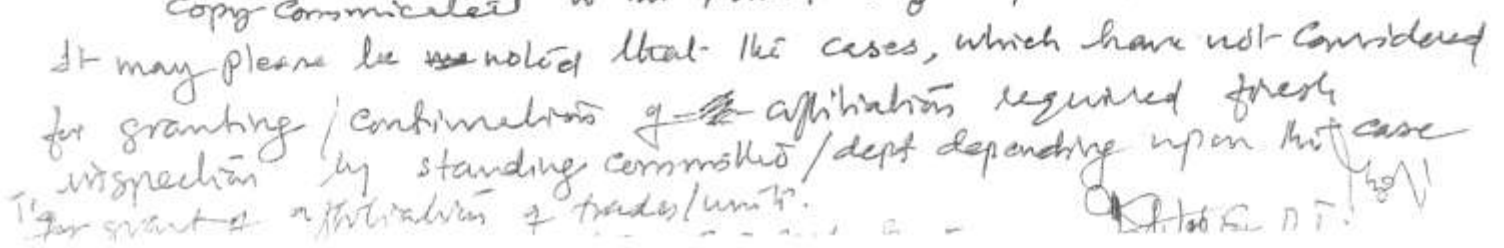 Copy Commicated to
It may please be noted that the cases, which have not Considered
for granting / continuation of affiliation required fresh
inspection by standing committee / dept depending upon the case
for grant of affiliation of trades/units.